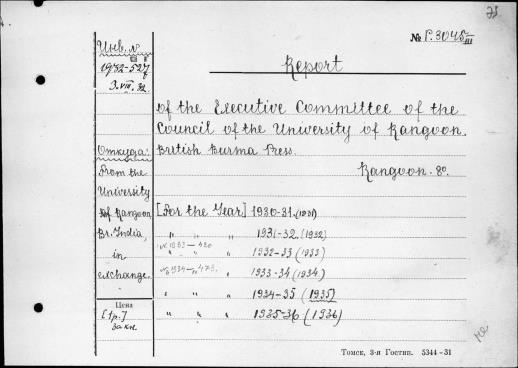 № Г.3045/III
Инв. №
1932-527
3.VIII.32
Report
of the Executive Committee of the
Council of the University of Rangoon.
British Burma Press.
Rangoon. 8°.
Откуда:
From the
University
of Rangoon
Br. India,
in
exchange.
[For the Year] 1930-31. (1931)
„ „ „ 1931-32. (1932)
№ 1933-420
„ „ 1932-33 (1933)
№ 1934-473.
„ 1933-34 (1934)
„ „ „ 1934-35 (1935)
„ „ „ 1935-36 (1936)
Цена
[1 р.]
Томск, 3-я Гостип. 5344-31